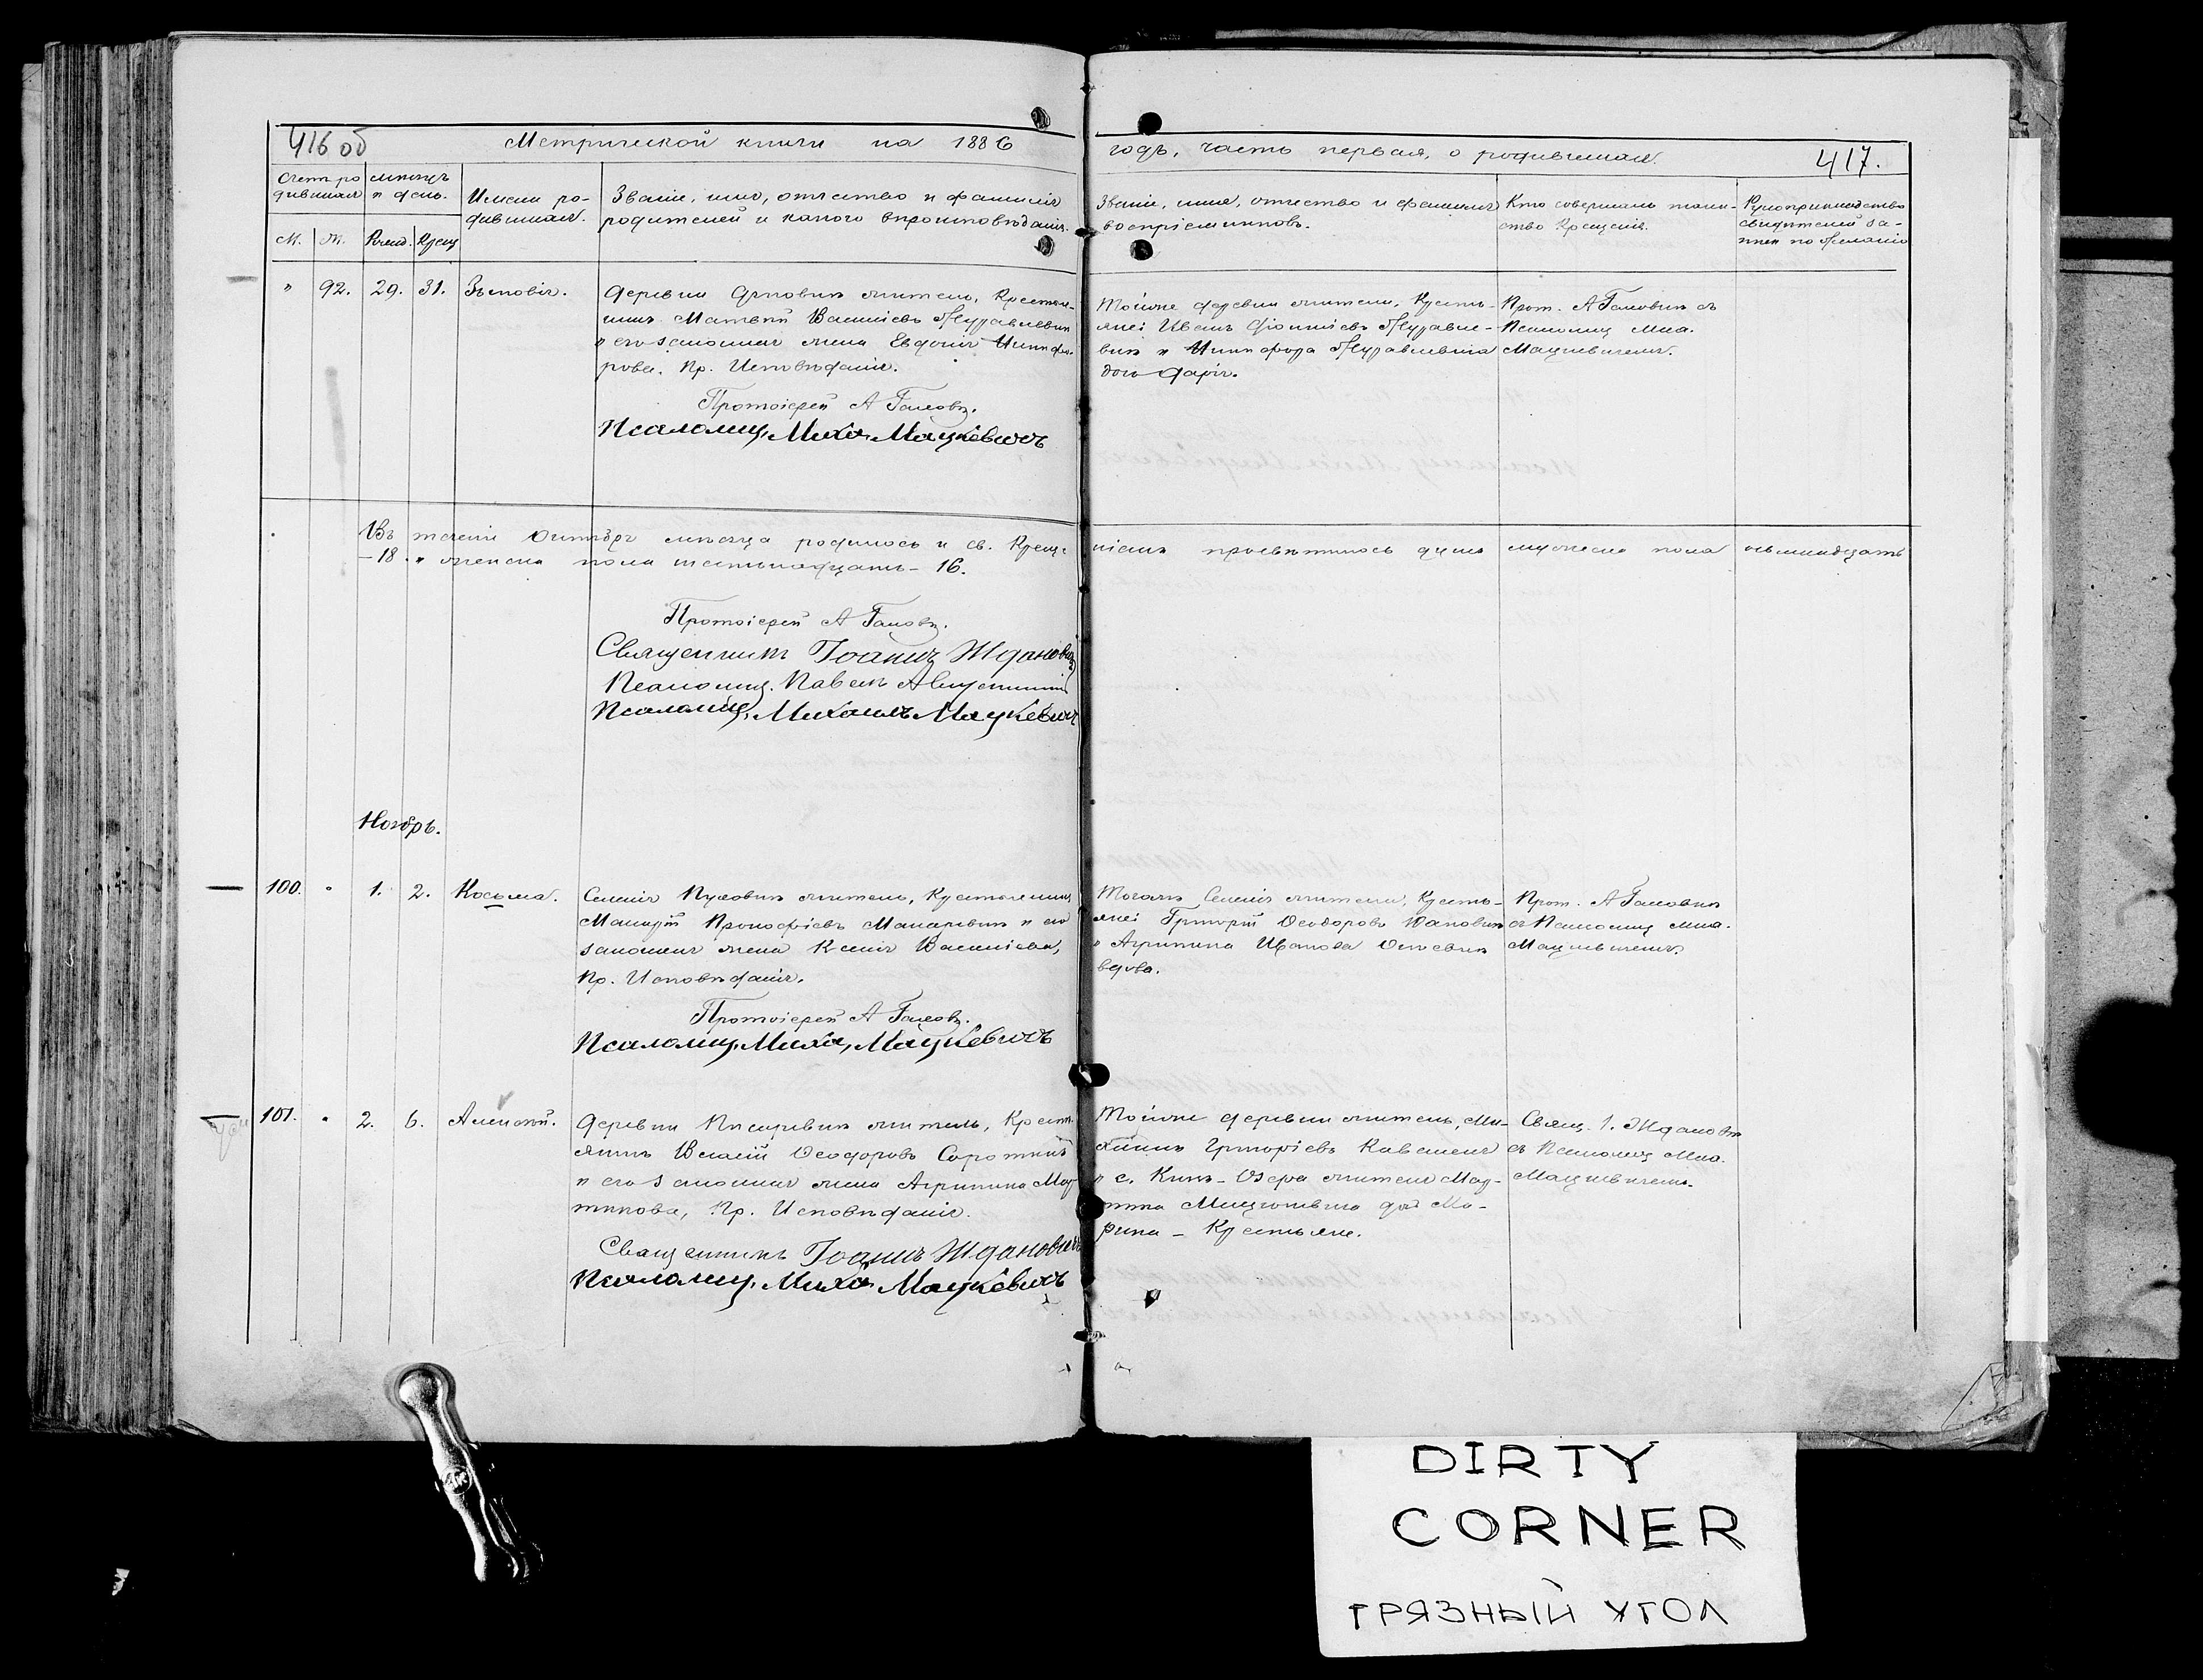 416 об
Метрической книги на 1886
годъ, часть первая, о родившихся.
417.
Счетъ ро-
дившихся
мѣсяцъ
и день.
Имена ро-
дившихся.
Званіе, имя, отчество и фамилія
родителей и какого вѣроисповѣданія.
Званіе, имя, отчество и фамилія
воспріемниковъ.
Кто совершалъ таин-
ство Крещенія.
Рукоприкладство
свидѣтелей за-
писи по желанію
М. Ж. Рожд. Крещ
" 92. 29. 31. Зѣновія.
Деревни житель, Крестья-
нинъ Матвѣй Василіевъ Журавлевичъ
и его законная жена Евдокія Никифо-
рова. Пр. Исповѣданія.
Протоіерей А Галовъ.
Псаломщ. Миха. Мацкевичъ
Тойже деревни жители, Кресть-
яне: Иванъ Журавле-
вичъ и Никифора Журавлевича
дочь Дарія.
Прот. А Галовичъ съ
Псаломщ Миха.
Мацкевичемъ.
Въ теченіи Октября мѣсяца родилось и св. Креще-
ніемъ просвѣтилось душъ мужеска пола осьмнадцать
- 18. и женска пола шестьнадцать - 16.
Протоіерей А Галовъ.
Священникъ Іоаннъ Ждановичъ
Псаломщ. Павелъ
Псаломщ, Михаилъ Мацкевичъ
Ноябрь.
100. " 1. 2. Косьма.
Селенія Пуховичъ житель, Крестьянинъ
Прокофіевъ Макаревичъ и его
законная жена Ксенія Василіева,
Пр. Исповѣданія.
Протоіерей А Галовъ.
Псаломщ. Миха, Мацкевичъ
Тогожъ Селенія жители, Кресть-
яне: Григорій Ѳеодоровъ
и Агрипина Иванова
вдова.
Прот. А Галовичъ
съ Псаломщ Миха.
Мацкевичемъ.
101. " 2. 6. Алексѣй.
Деревни житель, Крест-
янинъ Власій Ѳеодоровъ
и его законная жена Агрипина Мар-
тинова, Пр. Исповѣданія.
Священникъ Іоаннъ Ждановичъ
Псаломщ. Миха. Мацкевичъ
Тойже деревни житель, Ми-
хаилъ Григоріевъ
и с. Князь-Озера жителя Мар-
тина дочь Ма-
рина - Крестьяне.
Свящ. І. Ждановъ
съ Псаломщ Миха.
Мацкевичемъ.
DIRTY
CORNER
ГРЯЗНЫЙ УГОЛ